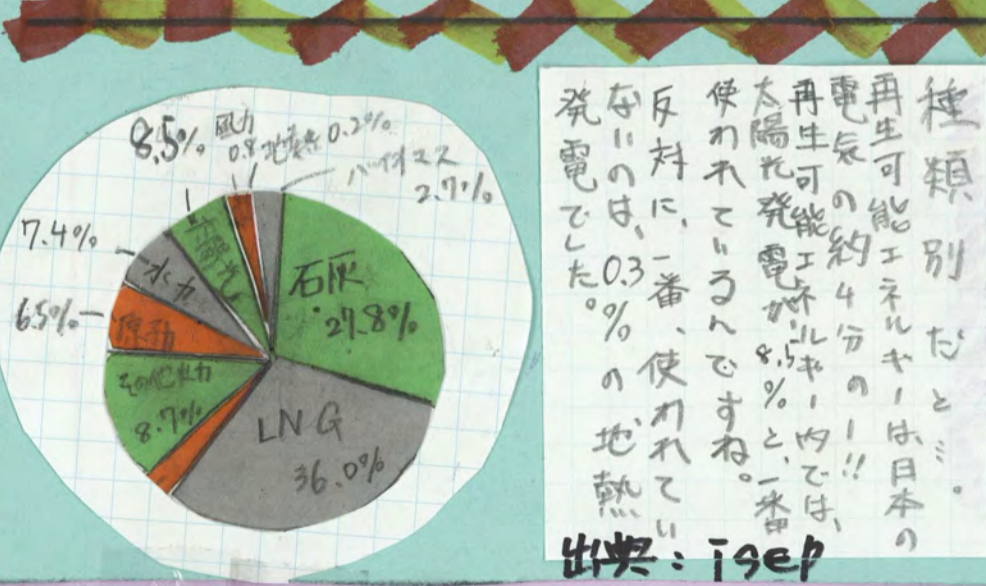 8.5%
風力
0.8
地熱 0.2%
バイオマス
2.7%
7.4%
太陽光
水力
6.5%
原子力
石灰
27.8%
その他火力
8.7%
LNG
36.0%
種類別だと…。
再生可能エネルギーは、日本の
電気の約4分の1!!
再生可能エネルギー内では、
太陽光発電が8.5%と、一番
使われているんですね。
反対に、一番、使われてい
ないのは、0.3%の地熱
発電でした。
出典:isep